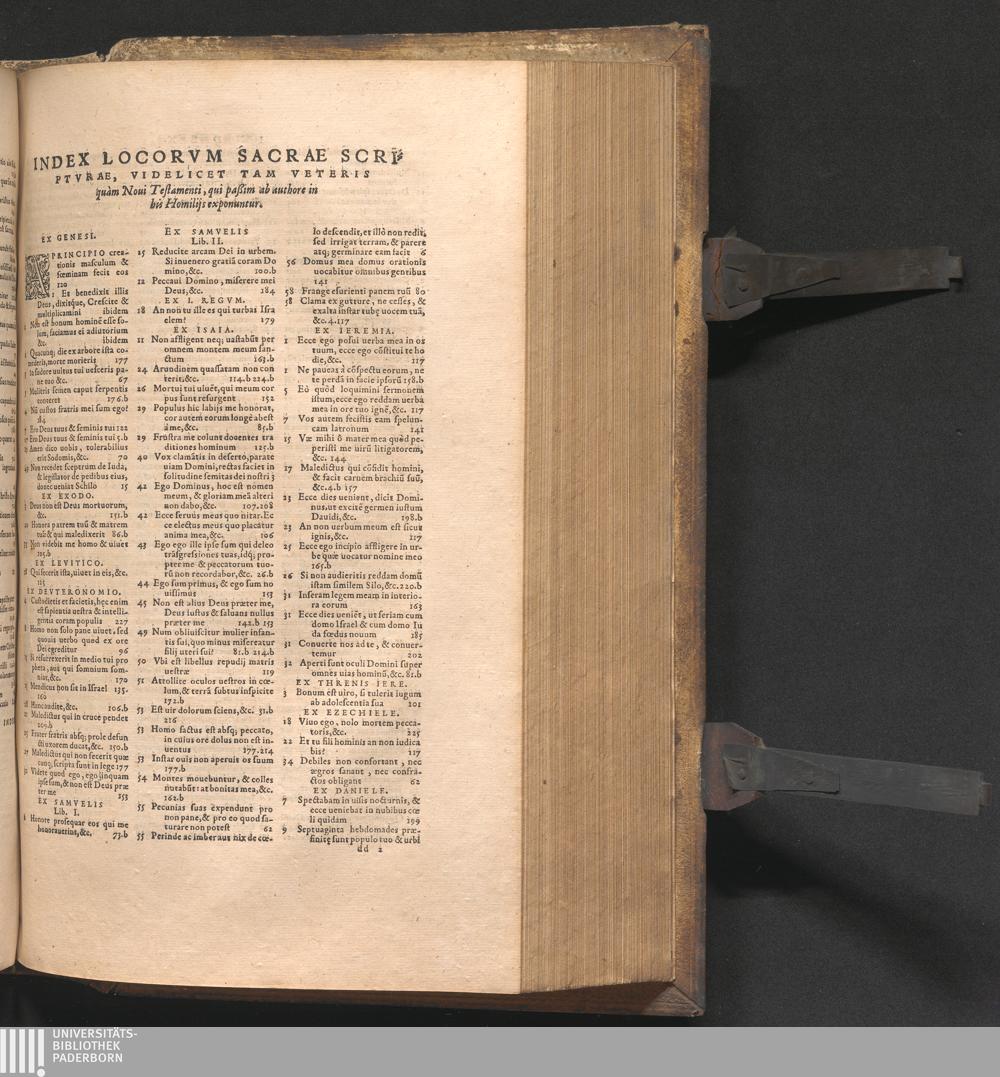 INDEX LOCORVM SACRAE SCRI
PTVRAE, VIDELICET TAM VETERIS
quàm Noui Testamenti, qui paßim ab authore in
his Homilijs exponuntur.
EX GENESI.
PRINCIPIO crea-
tionis masculum &
fœminam fecit eos
120
Et benedixit illis
Deus, dixitque, Crescite &
multiplicamini ibidem
Non est bonum hominē esse so-
lum, faciamus ei adiutorium
&c. ibidem
Quacunq; die ex arbore ista co-
mederis, morte morieris 177
In sudore uultus tui uesceris pa-
ne tuo &c. 67
Mulieris semen caput serpentis
conteret 176.b
Nū custos fratris mei sum ego?
184
Ero Deus tuus & seminis tui 122
Ero Deus tuus & seminis tui 5.b
Amen dico uobis, tolerabilius
erit Sodomis, &c. 70
Non recedet sceptrum de Iuda,
& legislator de pedibus eius,
donec ueniat Schilo 15
EX EXODO.
Deus non est Deus mortuorum,
&c. 151.b
Honora patrem tuū & matrem
tuā & qui maledixerit 86.b
Non uidebit me homo & uiuet
105.b
EX LEVITICO.
Qui fecerit ista, uiuet in eis, &c.
115
EX DEVTERONOMIO.
Custodietis et facietis, hęc enim
est sapientia uestra & intelli-
gentia coram populis 227
8 Homo non solo pane uiuet, sed
quouis uerbo quod ex ore
Dei egreditur 96
Si resurrexerit in medio tui pro
pheta, aut qui somnium som-
niat, &c. 170
Mendicus non sit in Israel 135.
160
Hunc audite, &c. 106.b
Maledictus qui in cruce pendet
209.b
Frater fratris absq; prole defun
cti uxorem ducat, &c. 150.b
Maledictus qui non fecerit quæ
cunq; scripta sunt in lege 177
Videte quod ego, ego inquam
ipse sum, & non est Deus præ
ter me 153
EX SAMVELIS
Lib. I.
Honore prosequar eos qui me
honorauerint, &c. 73.b
EX SAMVELIS
Lib. II.
15 Reducite arcam Dei in urbem.
Si inuenero gratiā coram Do
mino, &c. 100.b
12 Peccaui Domino, miserere mei
Deus, &c. 184
EX I. REGVM.
18 An non tu ille es qui turbas Isra
elem? 179
EX ISAIA.
11 Non affligent neq; uastabūt per
omnem montem meum san-
ctum 163.b
24 Arundinem quassatam non con
terit, &c. 114.b 224.b
26 Mortui tui uiuēt, qui meum cor
pus sunt resurgent 152
29 Populus hic labijs me honorat,
cor autem eorum longè abest
à me, &c. 85.b
29 Frustra me colunt docentes tra
ditiones hominum 125.b
40 Vox clamātis in deserto, parate
uiam Domini, rectas faciet in
solitudine semitas dei nostri 3
42 Ego Dominus, hoc est nomen
meum, & gloriam meā alteri
non dabo, &c. 107.208
42 Ecce seruus meus quo nitar. Ec
ce electus meus quo placatur
anima mea, &c. 106
43 Ego ego ille ipse sum qui deleo
trāsgressiones tuas, idq; pro-
pter me & peccatorum tuo-
rū non recordabor, &c. 26.b
44 Ego sum primus, & ego sum no
uissimus 153
45 Non est alius Deus præter me,
Deus iustus & saluans nullus
præter me 142.b 153
49 Num obliuiscitur mulier infan-
tis sui, quo minus misereatur
filij uteri sui? 81.b 214.b
50 Vbi est libellus repudij matris
uestræ 119
51 Attollite oculos uestros in cœ-
lum, & terrā subtus inspicite
172.b
53 Est uir dolorum sciens, &c. 31.b
216
53 Homo factus est absq; peccato,
in cuius ore dolus non est in-
uentus 177.214
53 Instar ouis non aperuit os suum
177.b
54 Montes mouebuntur, & colles
nutabūt: at bonitas mea, &c.
162.b
55 Pecunias suas expendunt pro
non pane, & pro eo quod sa-
turare non potest 62
55 Perinde ac imber aut nix de cœ-
lo descendit, et illò non redit,
sed irrigat terram, & parere
atq; germinare eam facit 6
56 Domus mea domus orationis
uocabitur omnibus gentibus
141
58 Frange esurienti panem tuū 80
58 Clama ex gutture, ne cesses, &
exalta instar tubę uocem tuā,
&c. 4.117
EX IEREMIA.
1 Ecce ego posui uerba mea in os
tuum, ecce ego cōstitui te ho
die, &c. 117
1 Ne paueas à cōspectu eorum, ne
te perdā in facie ipsorū 158.b
5 Eò quòd loquimini sermonem
istum, ecce ego reddam uerba
mea in ore tuo ignē, &c. 117
7 Vos autem fecistis eam spelun-
cam latronum 141
15 Væ mihi ô mater mea quòd pe-
peristi me uirū litigatorem,
&c. 144
17 Maledictus qui cōfidit homini,
& facit carnem brachiū suū,
&c. 4.b 157
23 Ecce dies uenient, dicit Domi-
nus, ut excitē germen iustum
Dauidi, &c. 198.b
23 An non uerbum meum est sicut
ignis, &c. 117
25 Ecce ego incipio affligere in ur-
be quæ uocatur nomine meo
165.b
26 Si non audieritis reddam domū
istam similem Silo, &c. 220.b
31 Inseram legem meam in interio-
ra eorum 163
31 Ecce dies ueniēt, ut feriam cum
domo Israel & cum domo Iu
da fœdus nouum 185
31 Conuerte nos ad te, & conuer-
temur 202
32 Aperti sunt oculi Domini super
omnes uias hominū, &c. 81.b
EX THRENIS IERE.
3 Bonum est uiro, si tuleris iugum
ab adolescentia sua 201
EX EZECHIELE.
18 Viuo ego, nolo mortem pecca-
toris, &c. 225
22 Et tu fili hominis an non iudica
bis? 117
34 Debiles non confortant, nec
ægros sanant, nec confra-
ctos obligant 62
EX DANIELE.
7 Spectabam in uisis nocturnis, &
ecce ueniebat in nubibus cœ
li quidam 199
9 Septuaginta hebdomades præ-
finitę sunt populo tuo & urbi
dd 2
UNIVERSITÄTS-
BIBLIOTHEK
PADERBORN